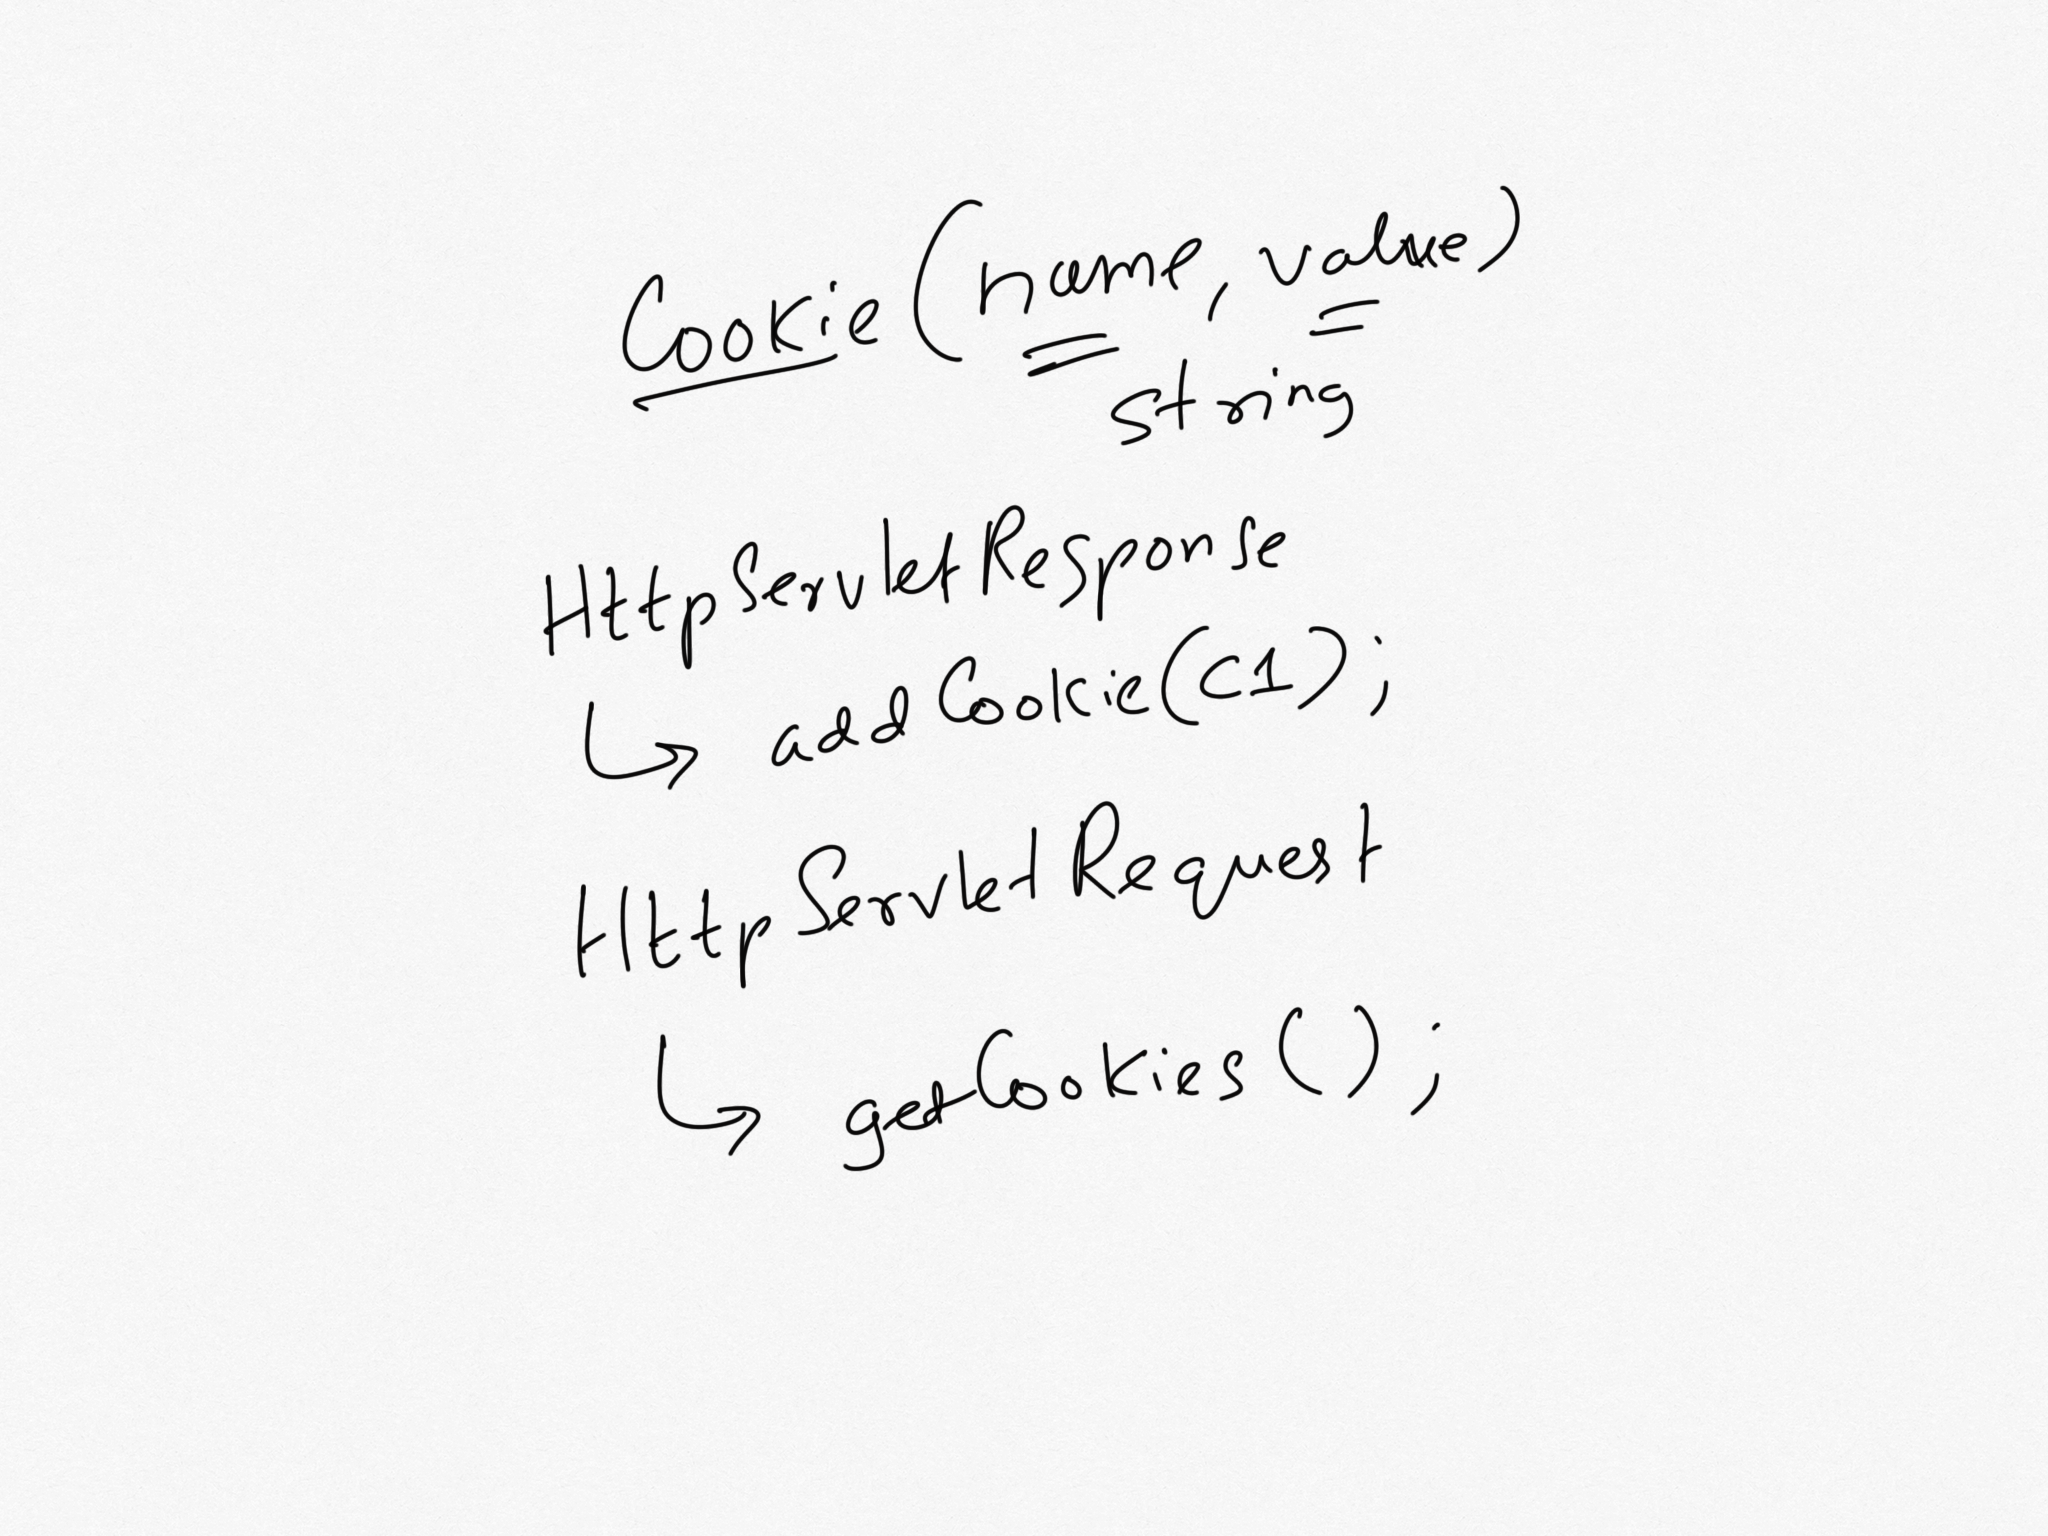 Cookie (name, value)
string
HttpServletResponse
↳ addCookie(C1);
HttpServletRequest
↳ getCookies();